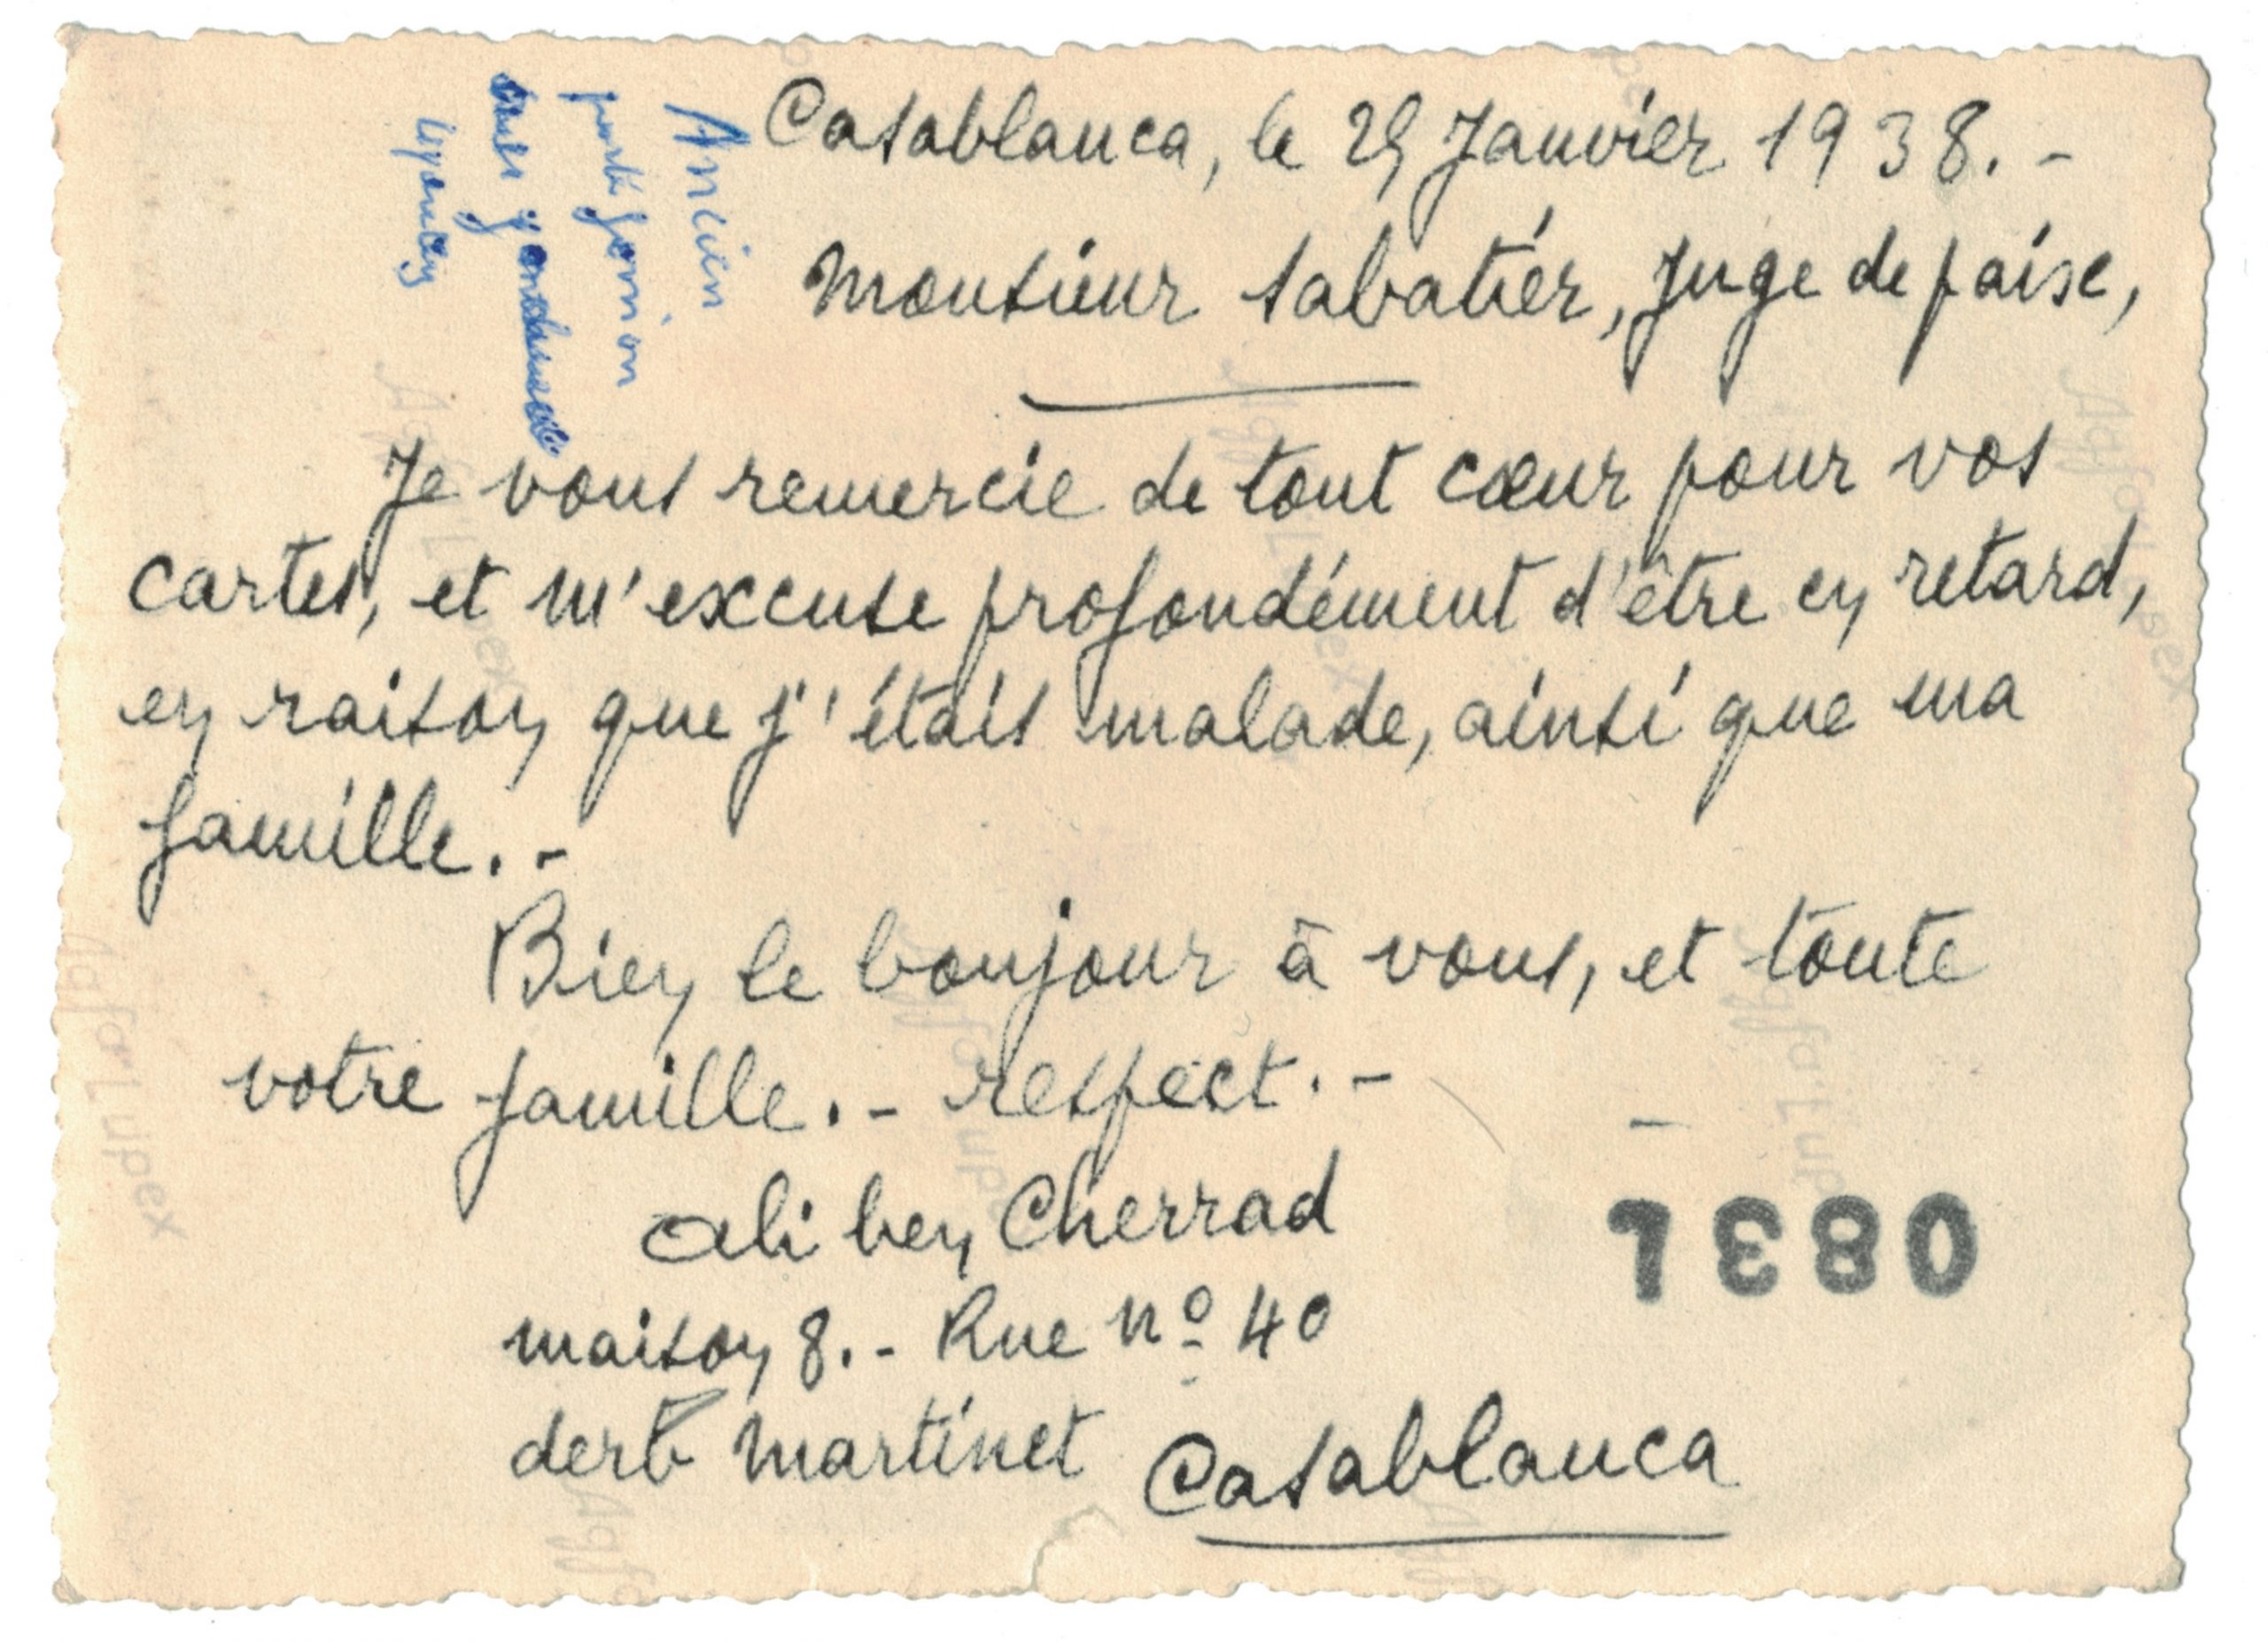 Ancien
porte fanion
Casablanca, le 29 Janvier 1938. -
Monsieur Sabatier, Juge de paise,
Je vous remercie de tout cœur pour vos
cartes, et m'excuse profondément d'être en retard,
en raison que j'étais malade, ainsi que ma
famille. -
Bien le bonjour à vous, et toute
votre famille. - respect. -
Ali ben Cherrad
maison 8. - Rue nº 40
derb Martinet Casablanca
0831
Agfa Lupex